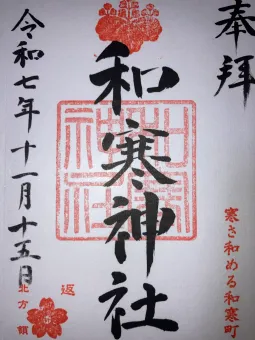 奉拝
寒さ和める和寒町
和寒神社
和寒神社
令和七年十一月十五日
返
北方領